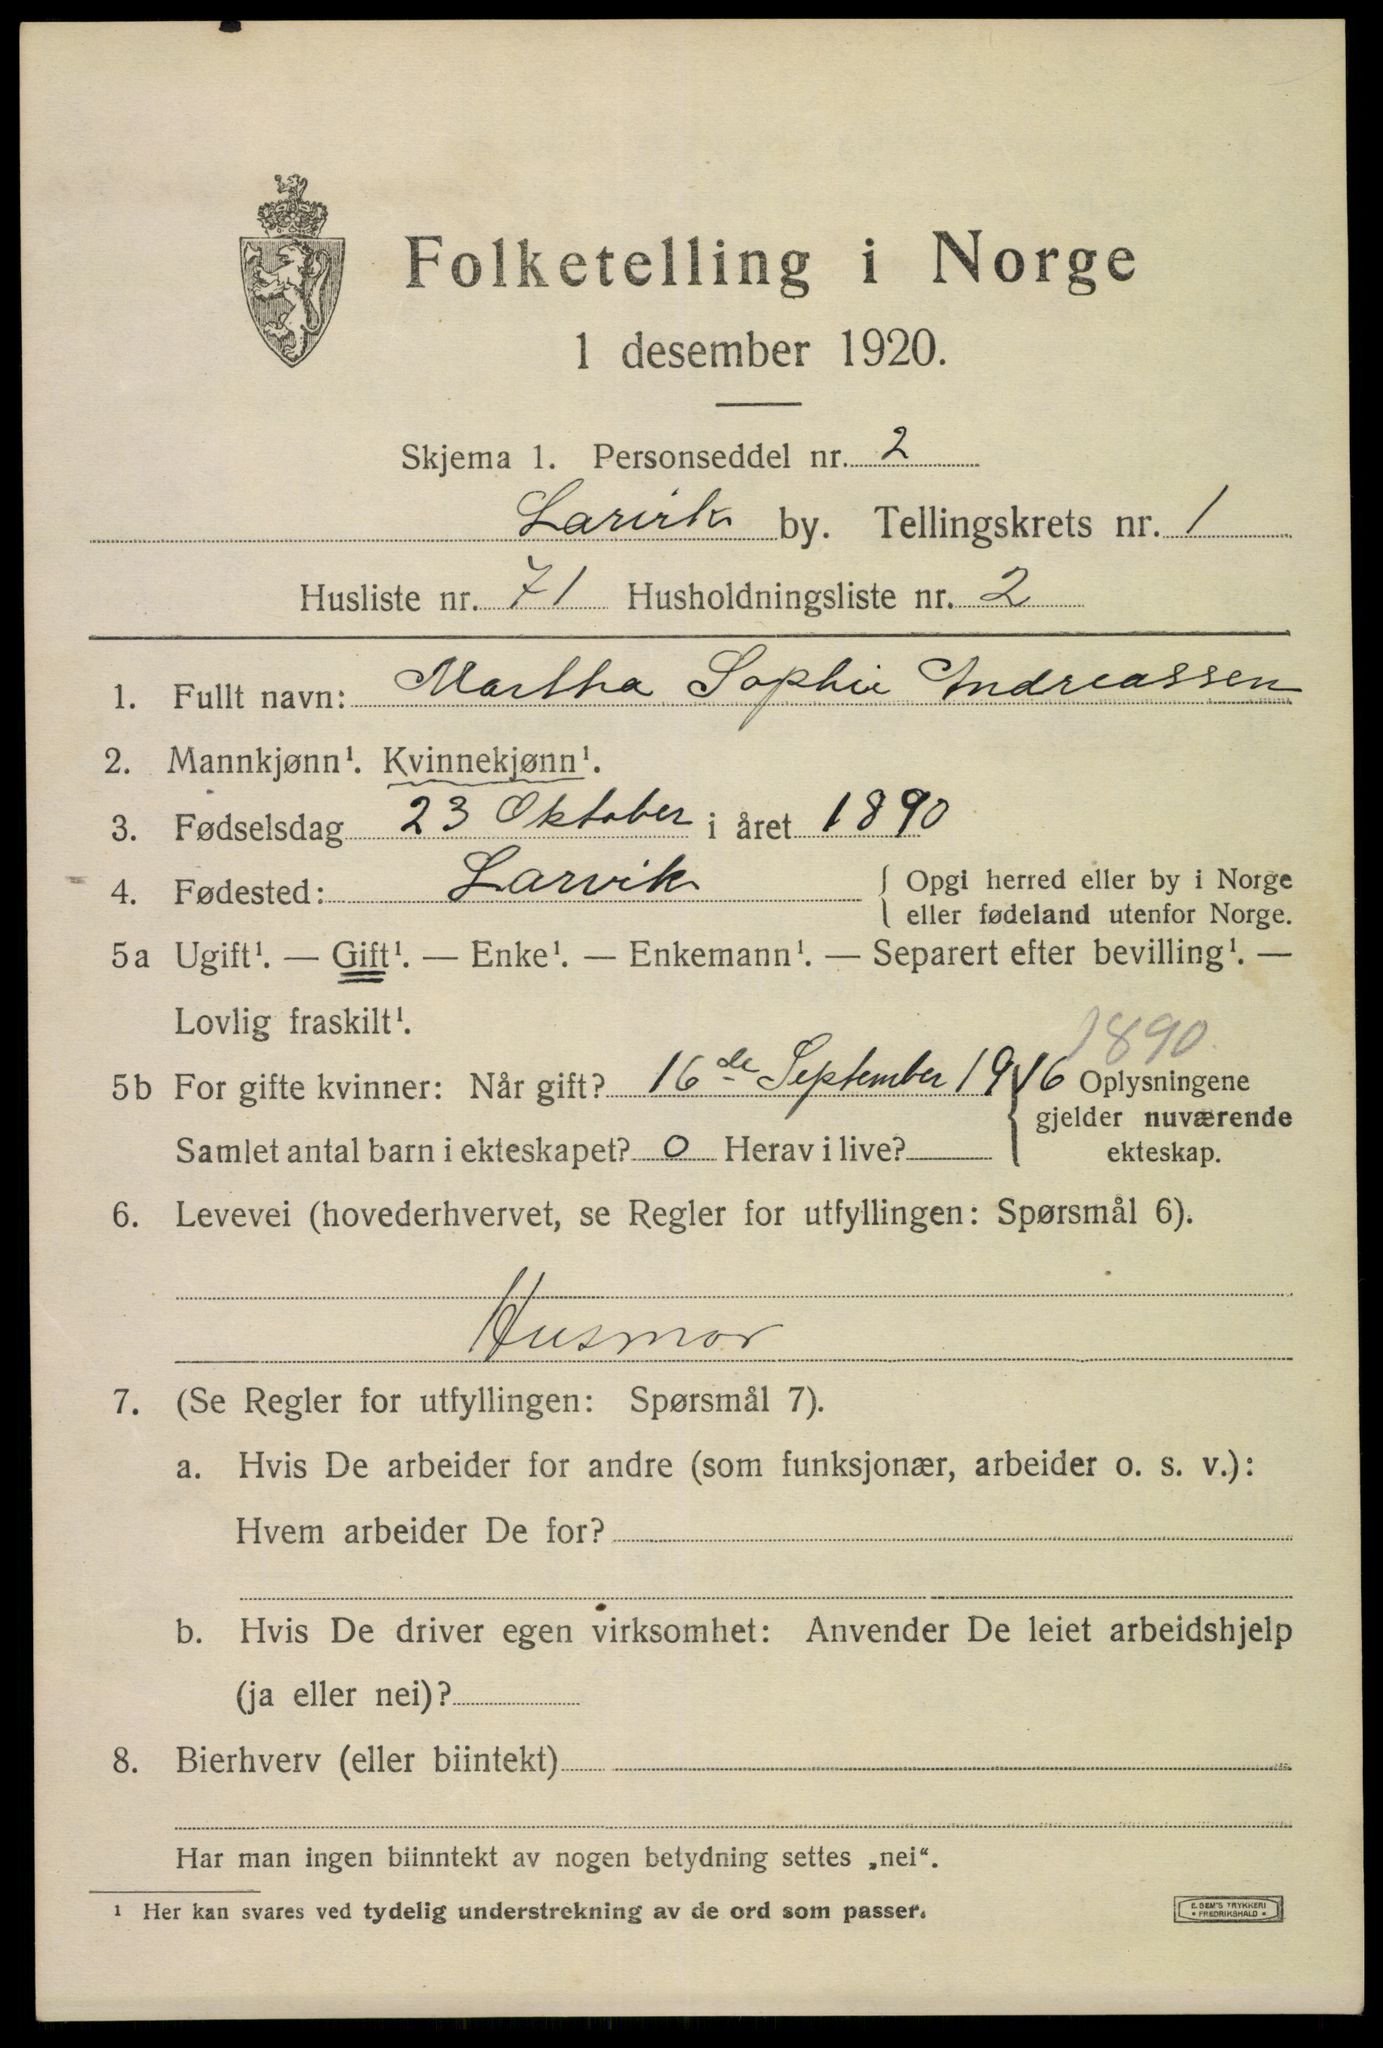 Folketelling i Norge
1 desember 1920.
Skjema 1. Personseddel nr. 2
Larvik by. Tellingskrets nr. 1
Husliste nr. 71 Husholdningsliste nr. 2
1. Fullt navn: Martha Sophie Andreassen
2. Mannkjønn¹. Kvinnekjønn¹.
3. Fødselsdag 23 Oktober i året 1890
4. Fødested: Larvik { Opgi herred eller by i Norge
eller fødeland utenfor Norge.
5a Ugift¹. — Gift¹. — Enke¹. — Enkemann¹. — Separert efter bevilling¹. —
Lovlig fraskilt¹.
1890.
5b For gifte kvinner: Når gift? 16de September 1916 Oplysningene
gjelder nuværende
Samlet antal barn i ekteskapet? 0 Herav i live? ekteskap.
6. Levevei (hovederhvervet, se Regler for utfyllingen: Spørsmål 6).
Husmor
7. (Se Regler for utfyllingen: Spørsmål 7).
a. Hvis De arbeider for andre (som funksjonær, arbeider o. s. v.):
Hvem arbeider De for?
b. Hvis De driver egen virksomhet: Anvender De leiet arbeidshjelp
(ja eller nei)?
8. Bierhverv (eller biintekt)
Har man ingen biinntekt av nogen betydning settes „nei“.
¹ Her kan svares ved tydelig understrekning av de ord som passer.
E. SEM'S TRYKKERI
* FREDRIKSHALD *